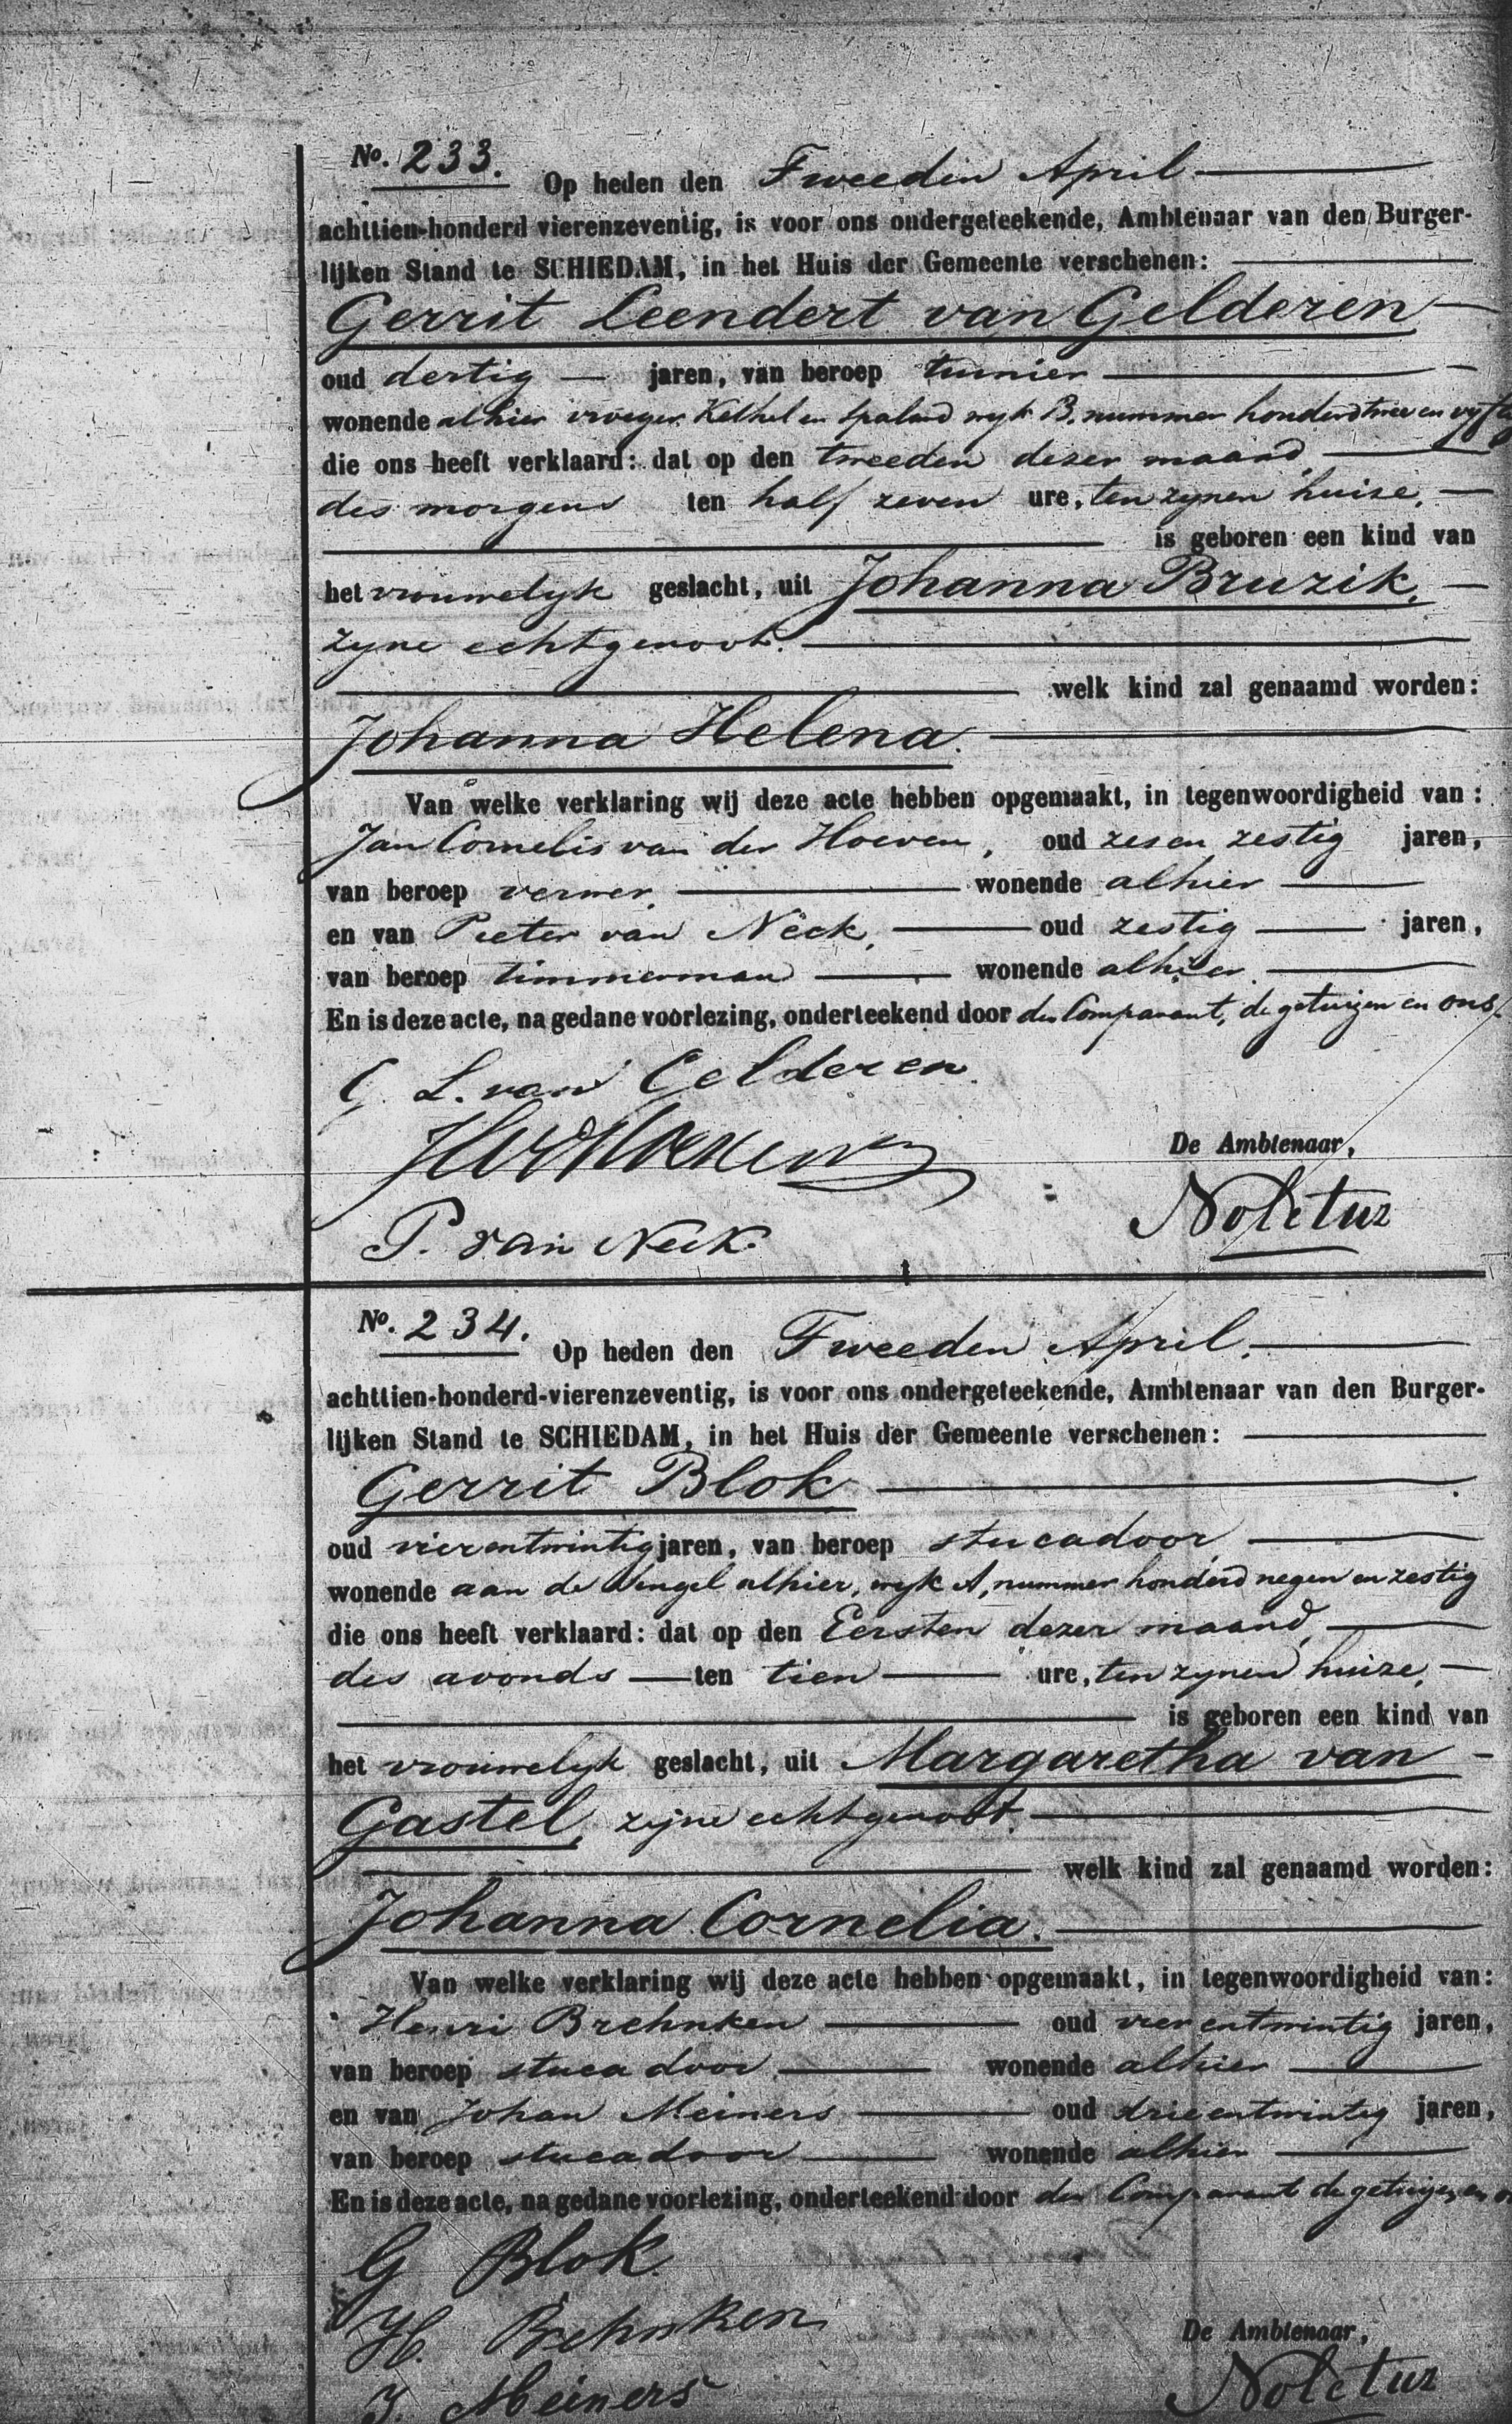 No. 233.
Op heden den Tweeden April
achttien-honderd vierenzeventig, is voor ons ondergeteekende, Ambtenaar van den Burger-
lijken Stand te SCHIEDAM, in het Huis der Gemeente verschenen:
Gerrit Leendert van Gelderen
oud dertig jaren, van beroep tuinier
wonende alhier vroeger Kethel en Spaland wyk B. nummer honderd twee en vyftig
die ons heeft verklaard: dat op den tweeden dezer maand
des morgens ten half zeven ure, ten zynen huize,
is geboren een kind van
het vrouwelyk geslacht, uit Johanna Bruzik,
zyne echtgenoot.
welk kind zal genaamd worden:
Johanna Helena.
Van welke verklaring wij deze acte hebben opgemaakt, in tegenwoordigheid van:
Jan Cornelis van der Hoeven, oud zes en zestig jaren,
van beroep verwer, wonende alhier
en van Pieter van Neck, oud zestig jaren,
van beroep timmerman wonende alhier.
En is deze acte, na gedane voorlezing, onderteekend door den Comparant, de getuigen en ons.
G. L. van Gelderen
De Ambtenaar,
P. van Neck.
No. 234.
Op heden den Tweeden April.
achttien-honderd-vierenzeventig, is voor ons ondergeteekende, Ambtenaar van den Burger-
lijken Stand te SCHIEDAM, in het Huis der Gemeente verschenen:
Gerrit Blok
oud vierentwintig jaren, van beroep stucadoor
wonende aan de Singel alhier, wyk A, nummer honderd negen en zestig
die ons heeft verklaard: dat op den Eersten dezer maand,
des avonds ten tien ure, ten zynen huize,
is geboren een kind van
het vrouwelyk geslacht, uit Margaretha van
Gastel, zijne echtgenoot.
welk kind zal genaamd worden:
Johanna Cornelia.
Van welke verklaring wij deze acte hebben opgemaakt, in tegenwoordigheid van:
Henri Brehnken oud vierentwintig jaren,
van beroep stucadoor wonende alhier
en van Johan Meiners oud drieentwintig jaren,
van beroep stucadoor wonende alhier
En is deze acte, na gedane voorlezing, onderteekend door den Comparant de getuigen en
G Blok.
H. Brehnken
De Ambtenaar,
J. Meiners